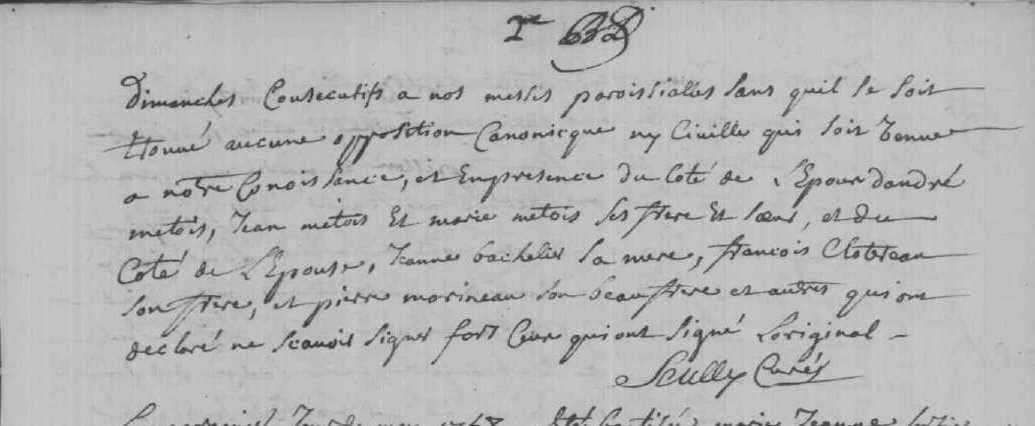 dimanches Consecutifs a nos messes paroissialles sans quil se soit
trouué aucune opposition Canonicque ny Ciuille qui soit venue
a notre Conoissance, et Enpresence du Coté de L'Epoux dandré
metois, Jean metois Et marie metois ses frere Et sœur, et du
Coté de L'Epouse, Jeanne bachelier sa mere, francois Clotreau
son frere, et pierre morineau son beaufrere et autres qui ont
declaré ne scauoir signer fors Ceux qui ont signé Loriginal
Scully Curé
marie Jeanne